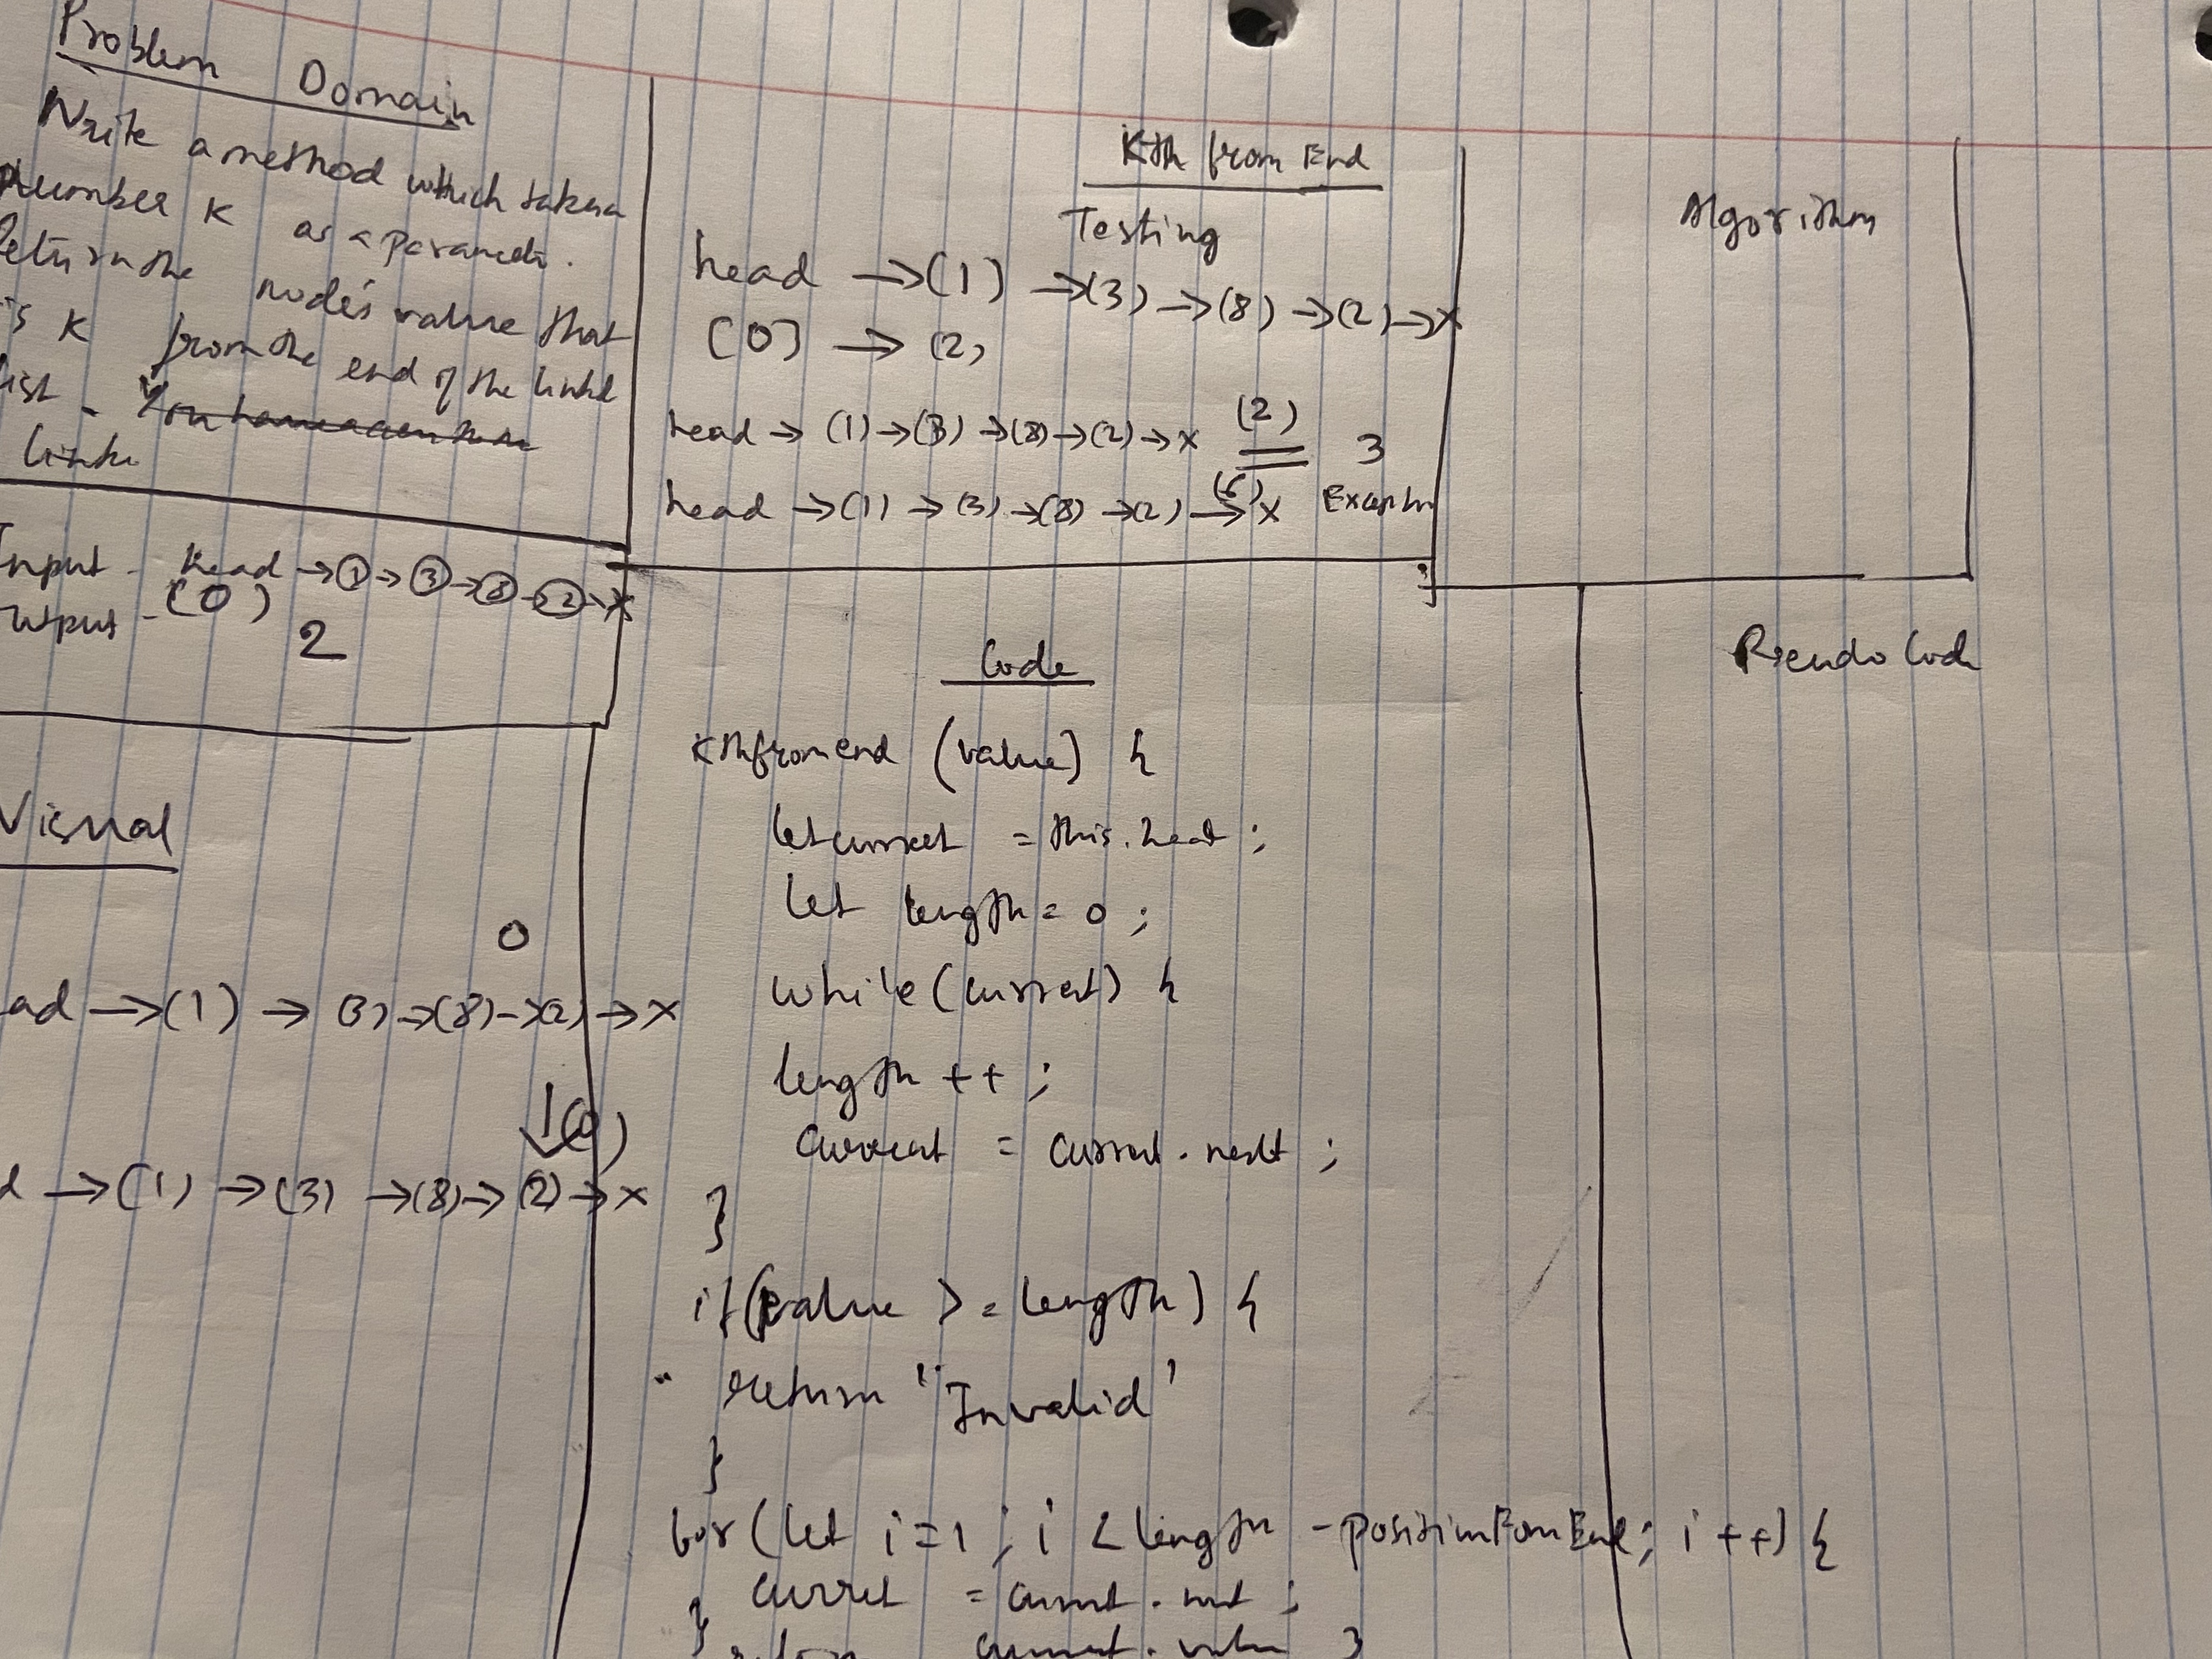 Problem Domain
Write a method which takes a
number K as a parameter.
Return the node's value that
is K from the end of the linked
list -
linke
Input - head → (1) → (3) → (8) → (2) → X
(0)
utput - 2
Visual
0
ead → (1) → (3) → (8) → (2) → X
↓ (0)
d → (1) → (3) → (8) → (2) → X
Kth from End
Testing
head → (1) → (3) → (8) → (2) → X
(0) → (2)
head → (1) → (3) → (8) → (2) → X (2) 3
head → (1) → (3) → (8) → (2) → X (6) Exception
Code
Kthfromend (value) {
let current = this.head ;
let length = 0 ;
while (current) {
length ++ ;
current = current.next ;
}
if (value >= length) {
return "Invalid'
}
for (let i=1 ; i < length - positionFromEnd ; i ++) {
current = current.next ;
} return current.value }
Algorithm
Pseudo Code